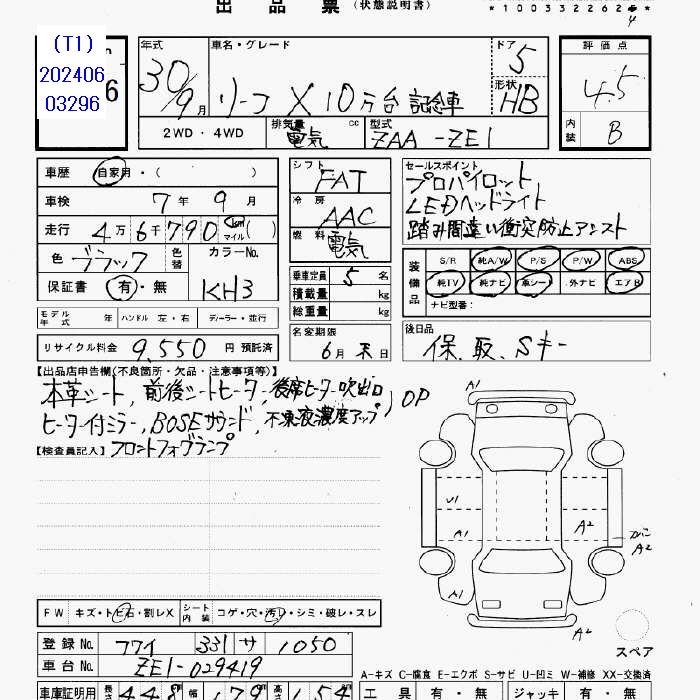 出品票 (状態説明書) *1003322624
(T1)
202406
03296
年式 車名・グレード ドア 5 評価点
30/9月 リーフ X 10万台 記念車 形状 HB 4.5
2WD・4WD 排気量 電気 cc 型式 ZAA-ZE1 内装 B
車歴 自家用・( )
車検 7年 9月
走行 4万 6千 790 km マイル ( )
色 ブラック 色替 カラーNo.
保証書 有・無 KH3
シフト FAT
冷房 AAC
燃料 電気
乗車定員 5 名
積載量 kg
総重量 kg
セールスポイント
プロパイロット
LEDヘッドライト
踏み間違い衝突防止アシスト
装備品 S/R 純A/W P/S P/W ABS
純TV 純ナビ 革シート 外ナビ エアB
ナビ型番:
モデル年式 年 ハンドル 左・右 ディーラー・並行
名変期限
6月 末日
後日品
保、取、Sキー
リサイクル料金 9,550 円 預託済
【出品店申告欄(不良箇所・欠品・注意事項等)】
本革シート、前後シートヒータ、後席ヒータ吹出口
ヒーター付ミラー、BOSEサウンド、不凍液濃度アップ、OP
【検査員記入】フロントフォグランプ
A1
U1
A1 A2
A2
A1
A2
スペア
FW キズ・トビ石・割レX シート内装 コゲ・穴・汚レ・シミ・破レ・スレ
登録No. フワイ 331 サ 1050
車台No. ZE1-029419
A-キズ C-腐食 E-エクボ S-サビ U-凹ミ W-補修 XX-交換済
車庫証明用 長さ 448 幅 179 高さ 154 工具 有・無 ジャッキ 有・無